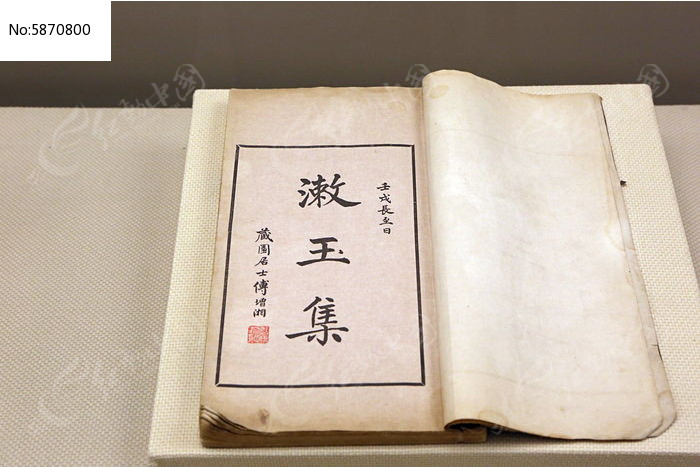 No:5870800
壬戌長至日
漱玉集
藏園居士傅增湘